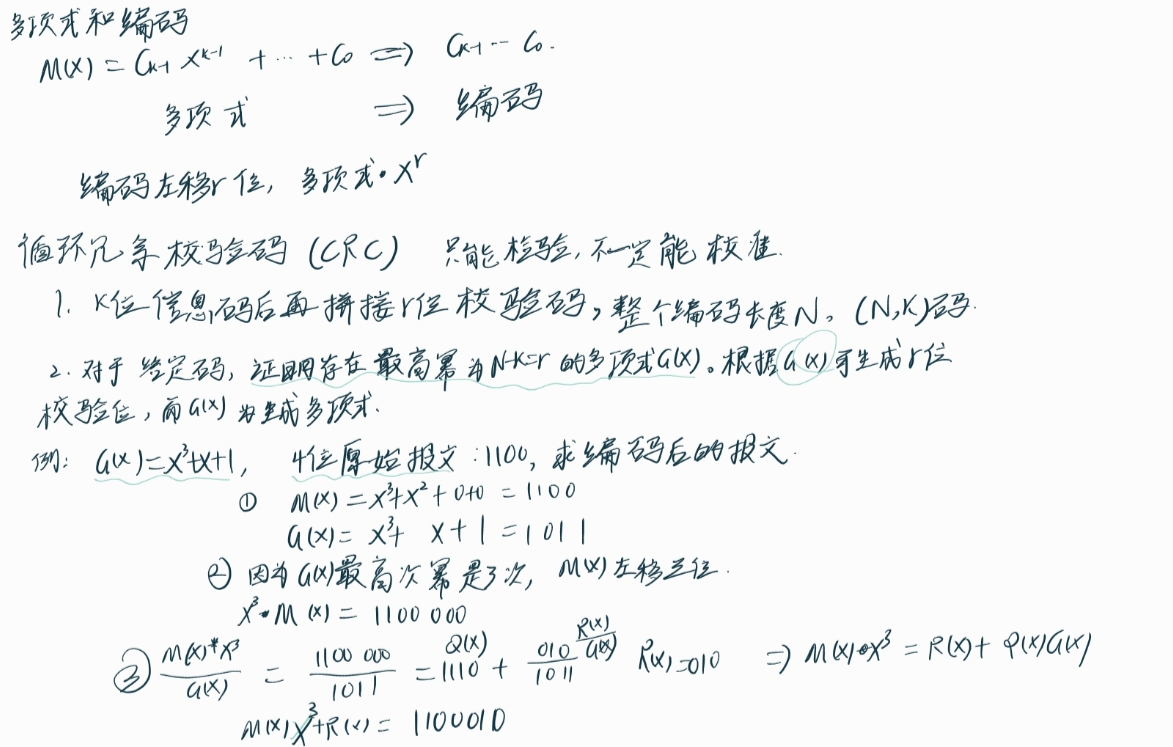 多项式和编码
M(X) = Cₖ₋₁ Xᵏ⁻¹ + ⋯ + C₀ ⇒ Cₖ₋₁ ⋯ C₀.
多项式 ⇒ 编码
编码左移r位, 多项式·Xʳ
循环冗余校验码 (CRC) 只能检验, 不一定能校准.
1. K位信息码后再拼接r位校验码, 整个编码长度N。(N,K)码.
2. 对于给定码, 证明存在最高幂为N-K=r的多项式G(X)。根据G(X)可生成r位
校验位, 而G(X)为生成多项式.
例: G(X)=X³+X+1, 4位原始报文:1100, 求编码后的报文.
① M(X) = X³+X²+0+0 = 1100
G(X) = X³+ X+1 = 1011
② 因为G(X)最高次幂是3次, M(X)左移三位.
X³·M(X) = 1100 000
③ M(X)*X³/G(X) = 1100 000/1011 = Q(X) 1110 + 010/1011 R(X)/G(X) R(X)=010 ⇒ M(X)·X³ = R(X)+ Q(X)G(X)
M(X)X³+R(X) = 1100010